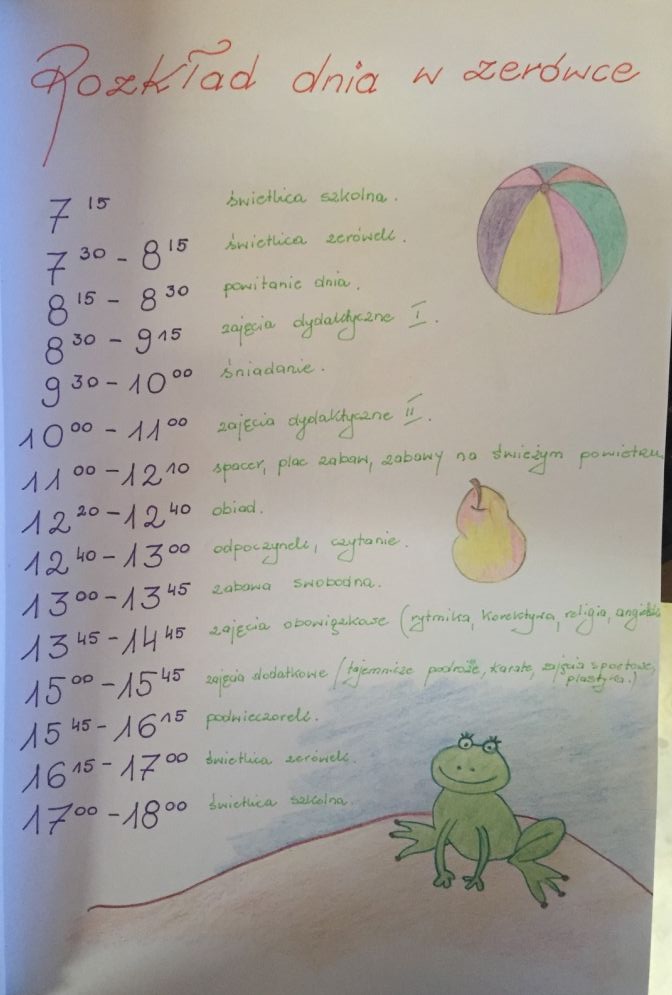 Rozkład dnia w zerówce
7 15 świetlica szkolna.
7 30 - 8 15 świetlica zerówek.
8 15 - 8 30 powitanie dnia.
8 30 - 9 15 zajęcia dydaktyczne I.
9 30 - 10 00 śniadanie.
10 00 - 11 00 zajęcia dydaktyczne II.
11 00 - 12 10 spacer, plac zabaw, zabawy na świeżym powietrzu
12 20 - 12 40 obiad.
12 40 - 13 00 odpoczynek, czytanie.
13 00 - 13 45 zabawa swobodna.
13 45 - 14 45 zajęcia obowiązkowe (rytmika, korektywa, religia, angielski
15 00 - 15 45 zajęcia dodatkowe (tajemnicze podróże, karate, zajęcia sportowe,
plastyka.)
15 45 - 16 15 podwieczorek.
16 15 - 17 00 świetlica zerówek.
17 00 - 18 00 świetlica szkolna.